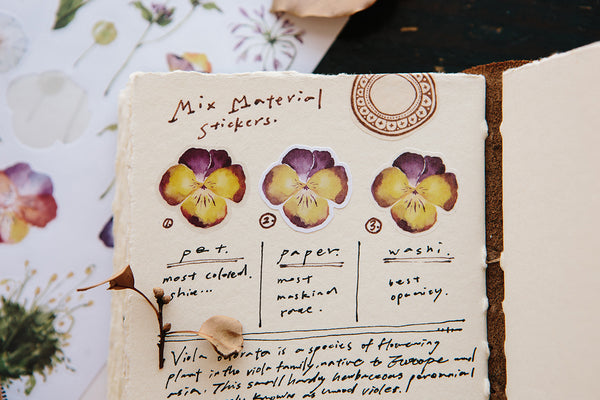 Mix Material
stickers.
1. 2. 3.
pet. paper. washi.
most colored. most best
shie... maskind opancy.
Viola odorata is a species of flowering
plant in the viola family, native to Europe and
asia. This small hardy herbaceous perennial
known as wood violes.